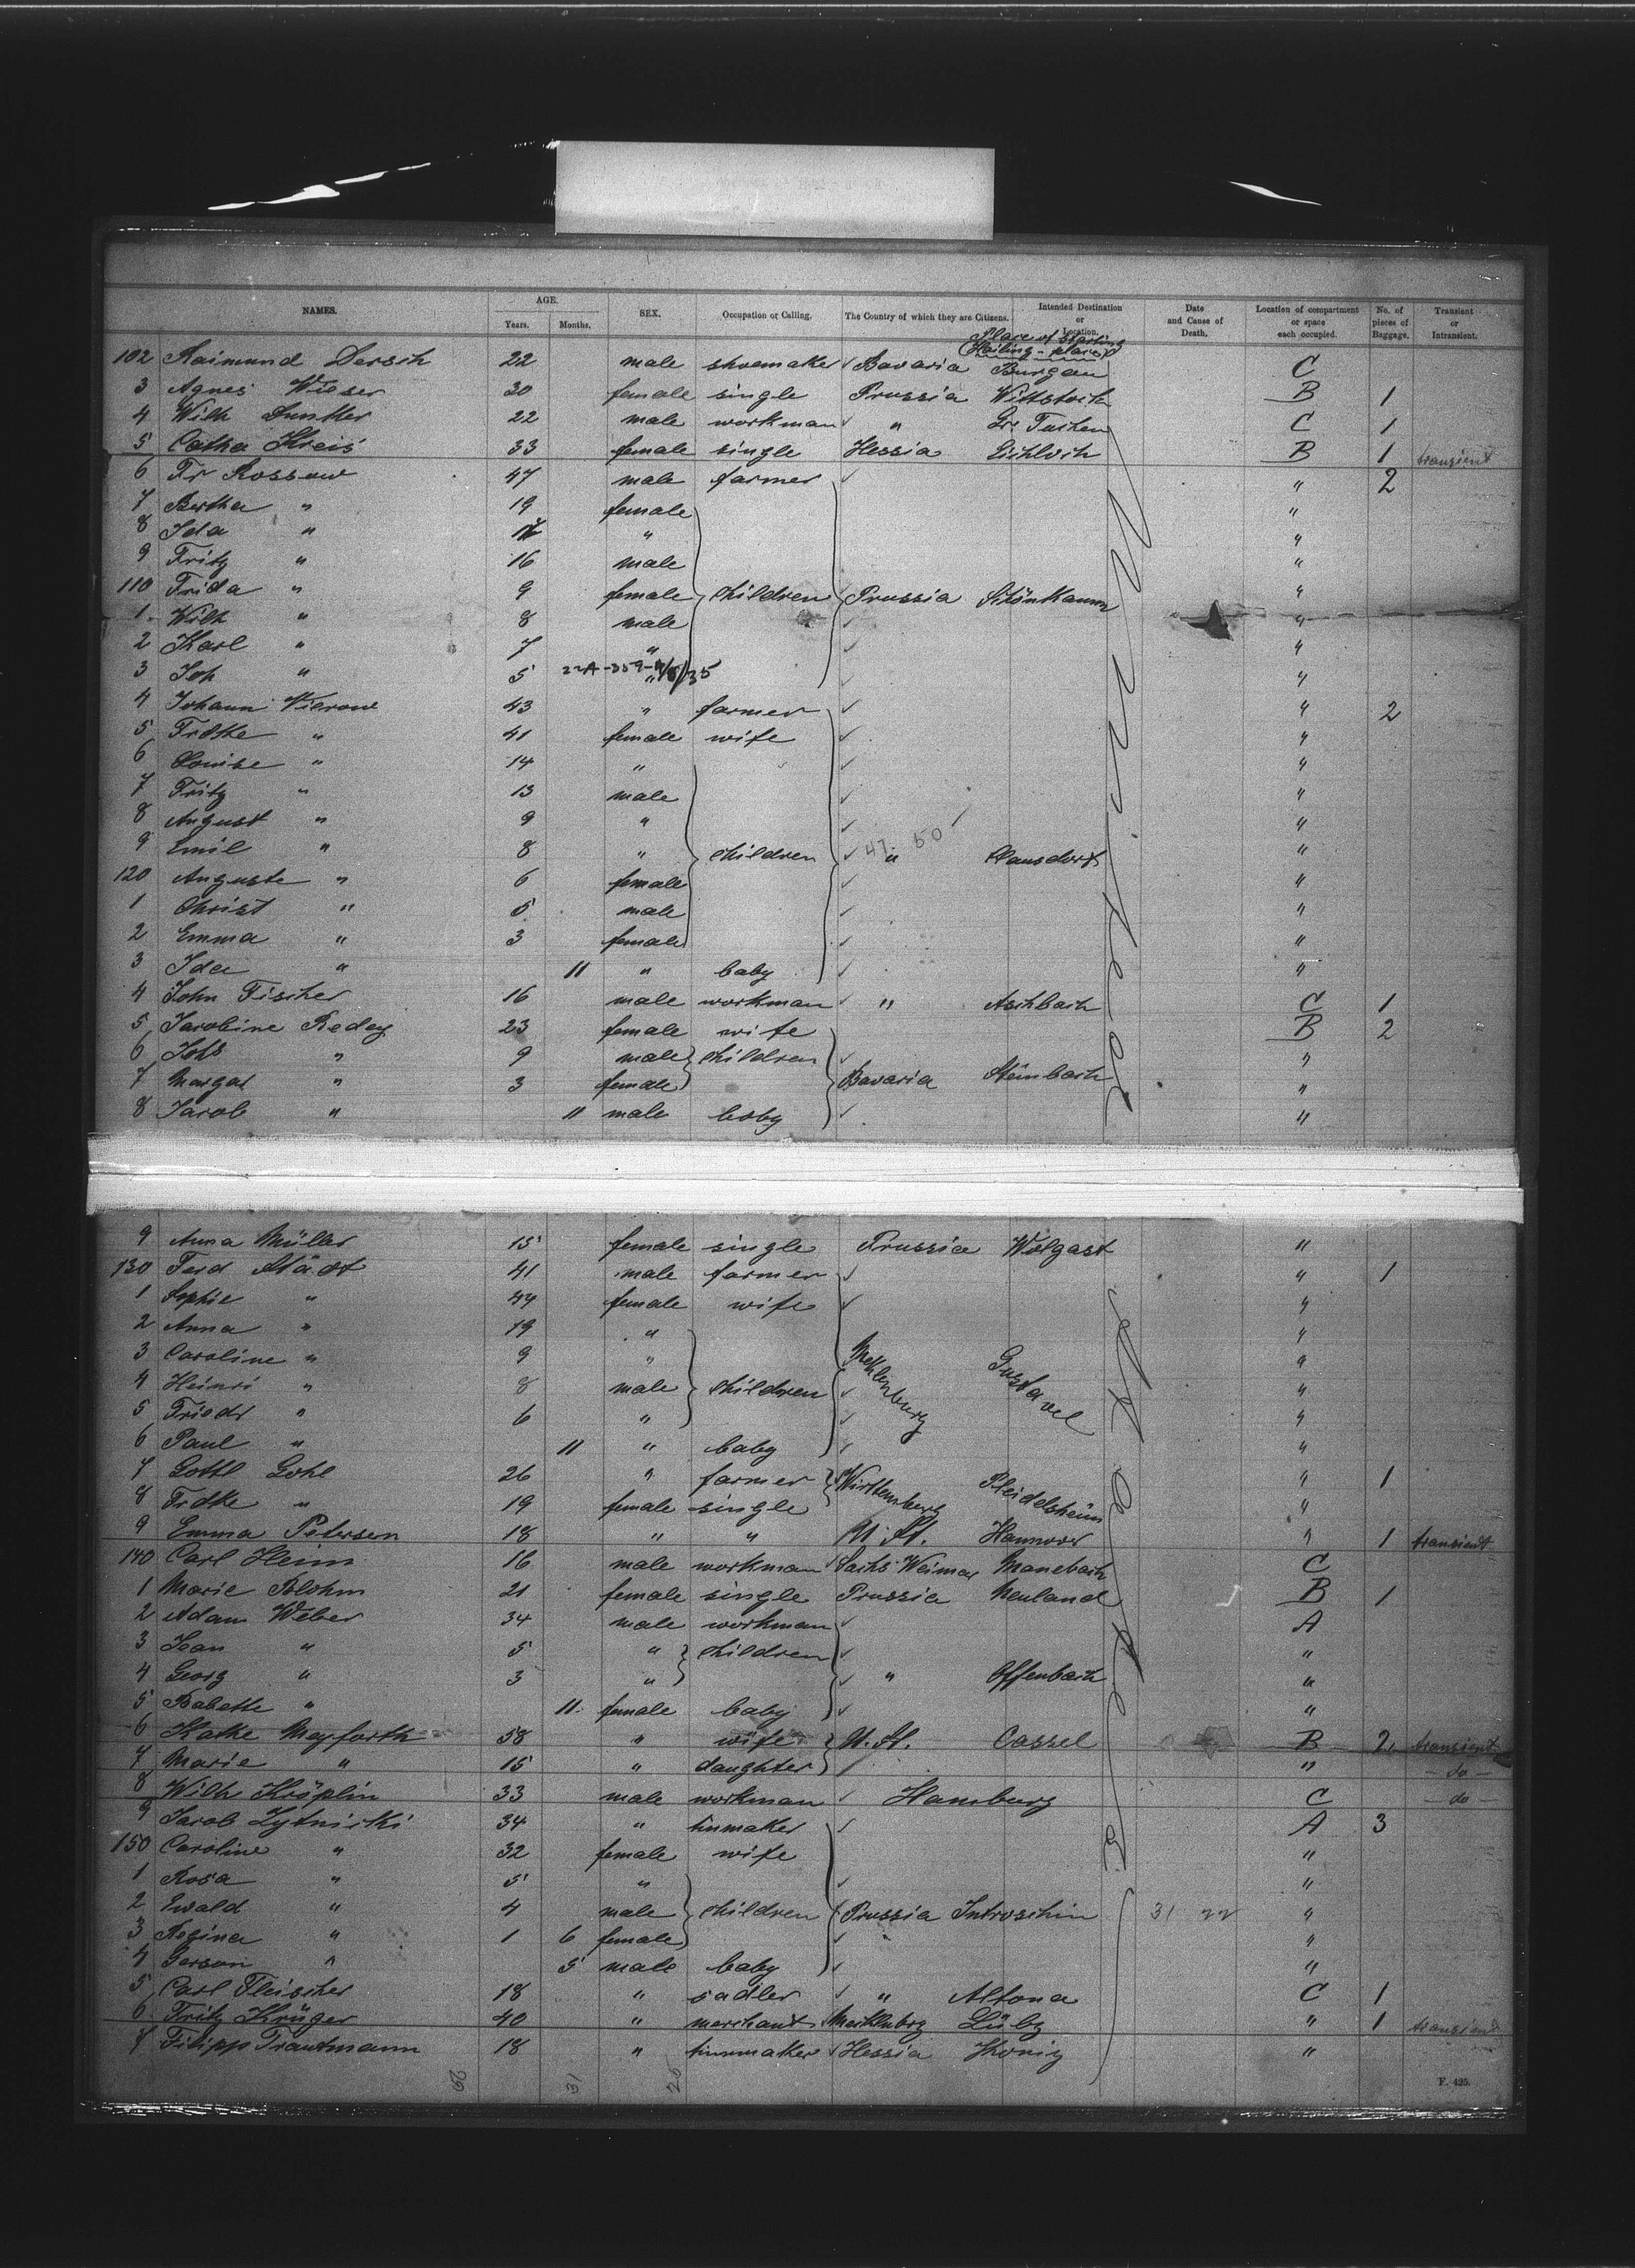 NAMES. AGE. Years. Months. SEX. Occupation or Calling. The Country of which they are Citizens. Intended Destination or Location. Date and Cause of Death. Location of compartment or space each occupied. No. of pieces of Baggage. Transient or Intransient.
Place of Starting
Hailing-place
102 Raimund Dersch 22 male shoemaker Bavaria Burgau C
3 Agnes Wieser 30 female single Prussia Wittstock B 1
4 Wilh 22 male workman " Gr. C 1
5 Catha Kreis 33 female single Hessia B 1 transient
6 Fr Rossow 47 male farmer " 2
7 Bertha " 19 female "
8 Ida " " "
9 Fritz " 16 male "
110 Frida " 9 female children Prussia "
1 Wilh " 8 male "
2 Karl " 7 " "
3 Joh " 5 " "
4 Johann Vierow 43 " farmer " 2
5 Frdke " 41 female wife "
6 Louise " 14 " "
7 Fritz " 13 male "
8 August " 9 " "
9 Emil " 8 " children " "
120 Auguste " 6 female "
1 Christ " 5 male "
2 Emma " 3 female "
3 Ida " 11 " baby "
4 John Fischer 16 male workman " Aschbach C 1
5 Jacobine Redey 23 female wife B 2
6 Johs " 9 male children "
7 Margar " 3 female Bavaria Steinbach "
8 Jacob " 11 male baby "
9 Anna Müller 15 female single Prussia Wolgast "
130 Ferd Städt 41 male farmer " 1
1 Sophie " 44 female wife "
2 Anna " 19 " "
3 Caroline " 9 " Meklenburg Gustavel "
4 Heinri " 8 male children "
5 Friedr " 6 " "
6 Paul " 11 " baby "
7 Gottl Gohl 26 " farmer Wirttemberg Pleidelsheim " 1
8 Frdke " 19 female single "
9 Emma Petersen 18 " " U. St. Hannover " 1 transient
140 Carl Heim 16 male workman Sachs Weimar Manebach C
1 Marie Blohm 21 female single Prussia Neuland B 1
2 Adam Weber 34 male workman A
3 Jean " 5 " children "
4 Georg " 3 " " Offenbach "
5 Babette " 11 female baby "
6 Kathe Meyforth 58 " wife U. St. Cassel B 2 transient
7 Marie " 15 " daughter " - do -
8 Wilh Kröplin 33 male workman Hamburg C - do -
9 Jacob Zytnicki 34 " tinmaker A 3
150 Caroline " 32 female wife "
1 Rosa " 5 " "
2 Ewald " 4 male children Prussia 31 22 "
3 Regina " 1 6 female "
4 Gerson " 5 male baby "
5 Carl Fleischer 18 " sadler " Altona C 1
6 Fritz Krüger 40 " merchant Lübz " 1 transient
7 Filipp Trautmann 18 " Hessia König "
F. 425.